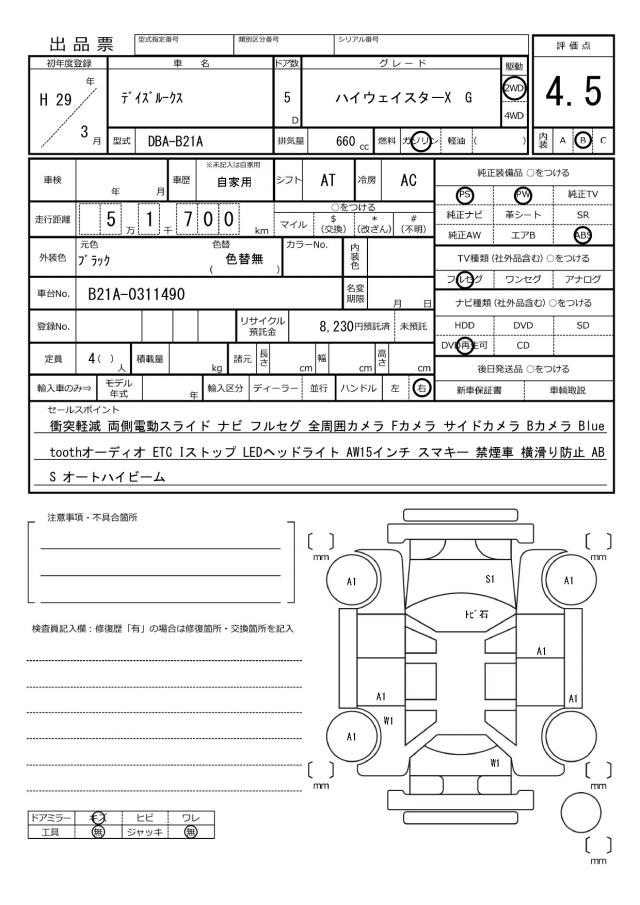 出品票
型式指定番号 類別区分番号 シリアル番号
評価点
初年度登録 車名 ドア数 グレード 駆動
H 29 年 3 月
デイズルークス
5 D
ハイウェイスターX G
2WD
4WD
4.5
型式 DBA-B21A 排気量 660 cc 燃料 ガソリン 軽油 ( )
内装 A B C
車検 年 月 車歴 ※未記入は自家用 自家用 シフト AT 冷房 AC
走行距離 5 万 1 千 7 0 0 km
○をつける
マイル $(交換) *(改ざん) #(不明)
外装色 元色 ブラック 色替 ( 色替無 ) カラーNo. 内装色
車台No. B21A-0311490 名変期限 月 日
登録No. リサイクル預託金 8,230円預託済 未預託
定員 4( )人 積載量 kg 諸元 長さ cm 幅 cm 高さ cm
輸入車のみ⇒ モデル年式 年 輸入区分 ディーラー 並行 ハンドル 左 右
純正装備品 ○をつける
PS PW 純正TV
純正ナビ 革シート SR
純正AW エアB ABS
TV種類(社外品含む)○をつける
フルセグ ワンセグ アナログ
ナビ種類(社外品含む)○をつける
HDD DVD SD
DVD再生可 CD
後日発送品 ○をつける
新車保証書 車輌取説
セールスポイント
衝突軽減 両側電動スライド ナビ フルセグ 全周囲カメラ Fカメラ サイドカメラ Bカメラ Blue
toothオーディオ ETC Iストップ LEDヘッドライト AW15インチ スマキー 禁煙車 横滑り防止 AB
S オートハイビーム
注意事項・不具合箇所
検査員記入欄：修復歴「有」の場合は修復箇所・交換箇所を記入
mm
mm
A1
S1
A1
トビ石
A1
A1
A1
W1
A1
W1
A1
mm
mm
mm
ドアミラー キズ ヒビ ワレ
工具 無 ジャッキ 無